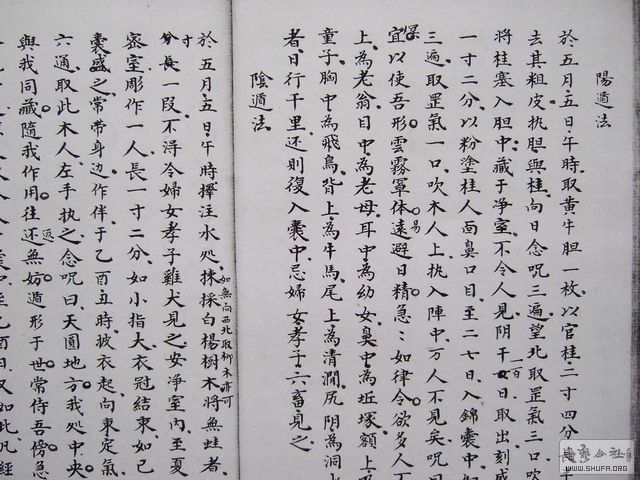 陽遁法
於五月五日、午時、取黃牛胆一枚、以官桂二寸四分
去其粗皮、执胆與桂、向日念呪三遍、望北取罡氣三口、吹
將桂塞入胆中、藏于净室、不令人見、阴干一百日、取出刻成
一寸二分、以粉塗桂人面鼻口目、至二七日、入錦囊中、如
三遍、取罡氣一口、吹木人上、执入陣中、万人不見矣、呪曰
宜以使吾形雲霧罩体、遠避日精、急：如律令、欲多人不
上為老翁、目中為老母、耳中為幼女、鼻中為坵塚、額上
童子、胸中為飛鳥、背上為牛馬、尾上為清澗、尻阴為洞
者、日行千里、还則復入囊中、忌婦女孝子六畜見之、
陰遁法
如無向西北取柳木亦可
於五月五日、午時擇注水处、揀採白楊樹木將無蛀者、
寸分長一段、不淂令婦女孝子雞犬見之、安净室內、至夏
密室、彫作一人、長一寸二分、如小指大、衣冠結束、如已
囊盛之、常带身边、作伴、于乙酉丑時、披衣起、向東定氣
六通、取此木人、左手执之、念呪曰、天圓地方、我处中央
與我同藏、隨我作用、往还無妨、遁形于世、常侍吾傍、急
WWW.SHUFA.ORG